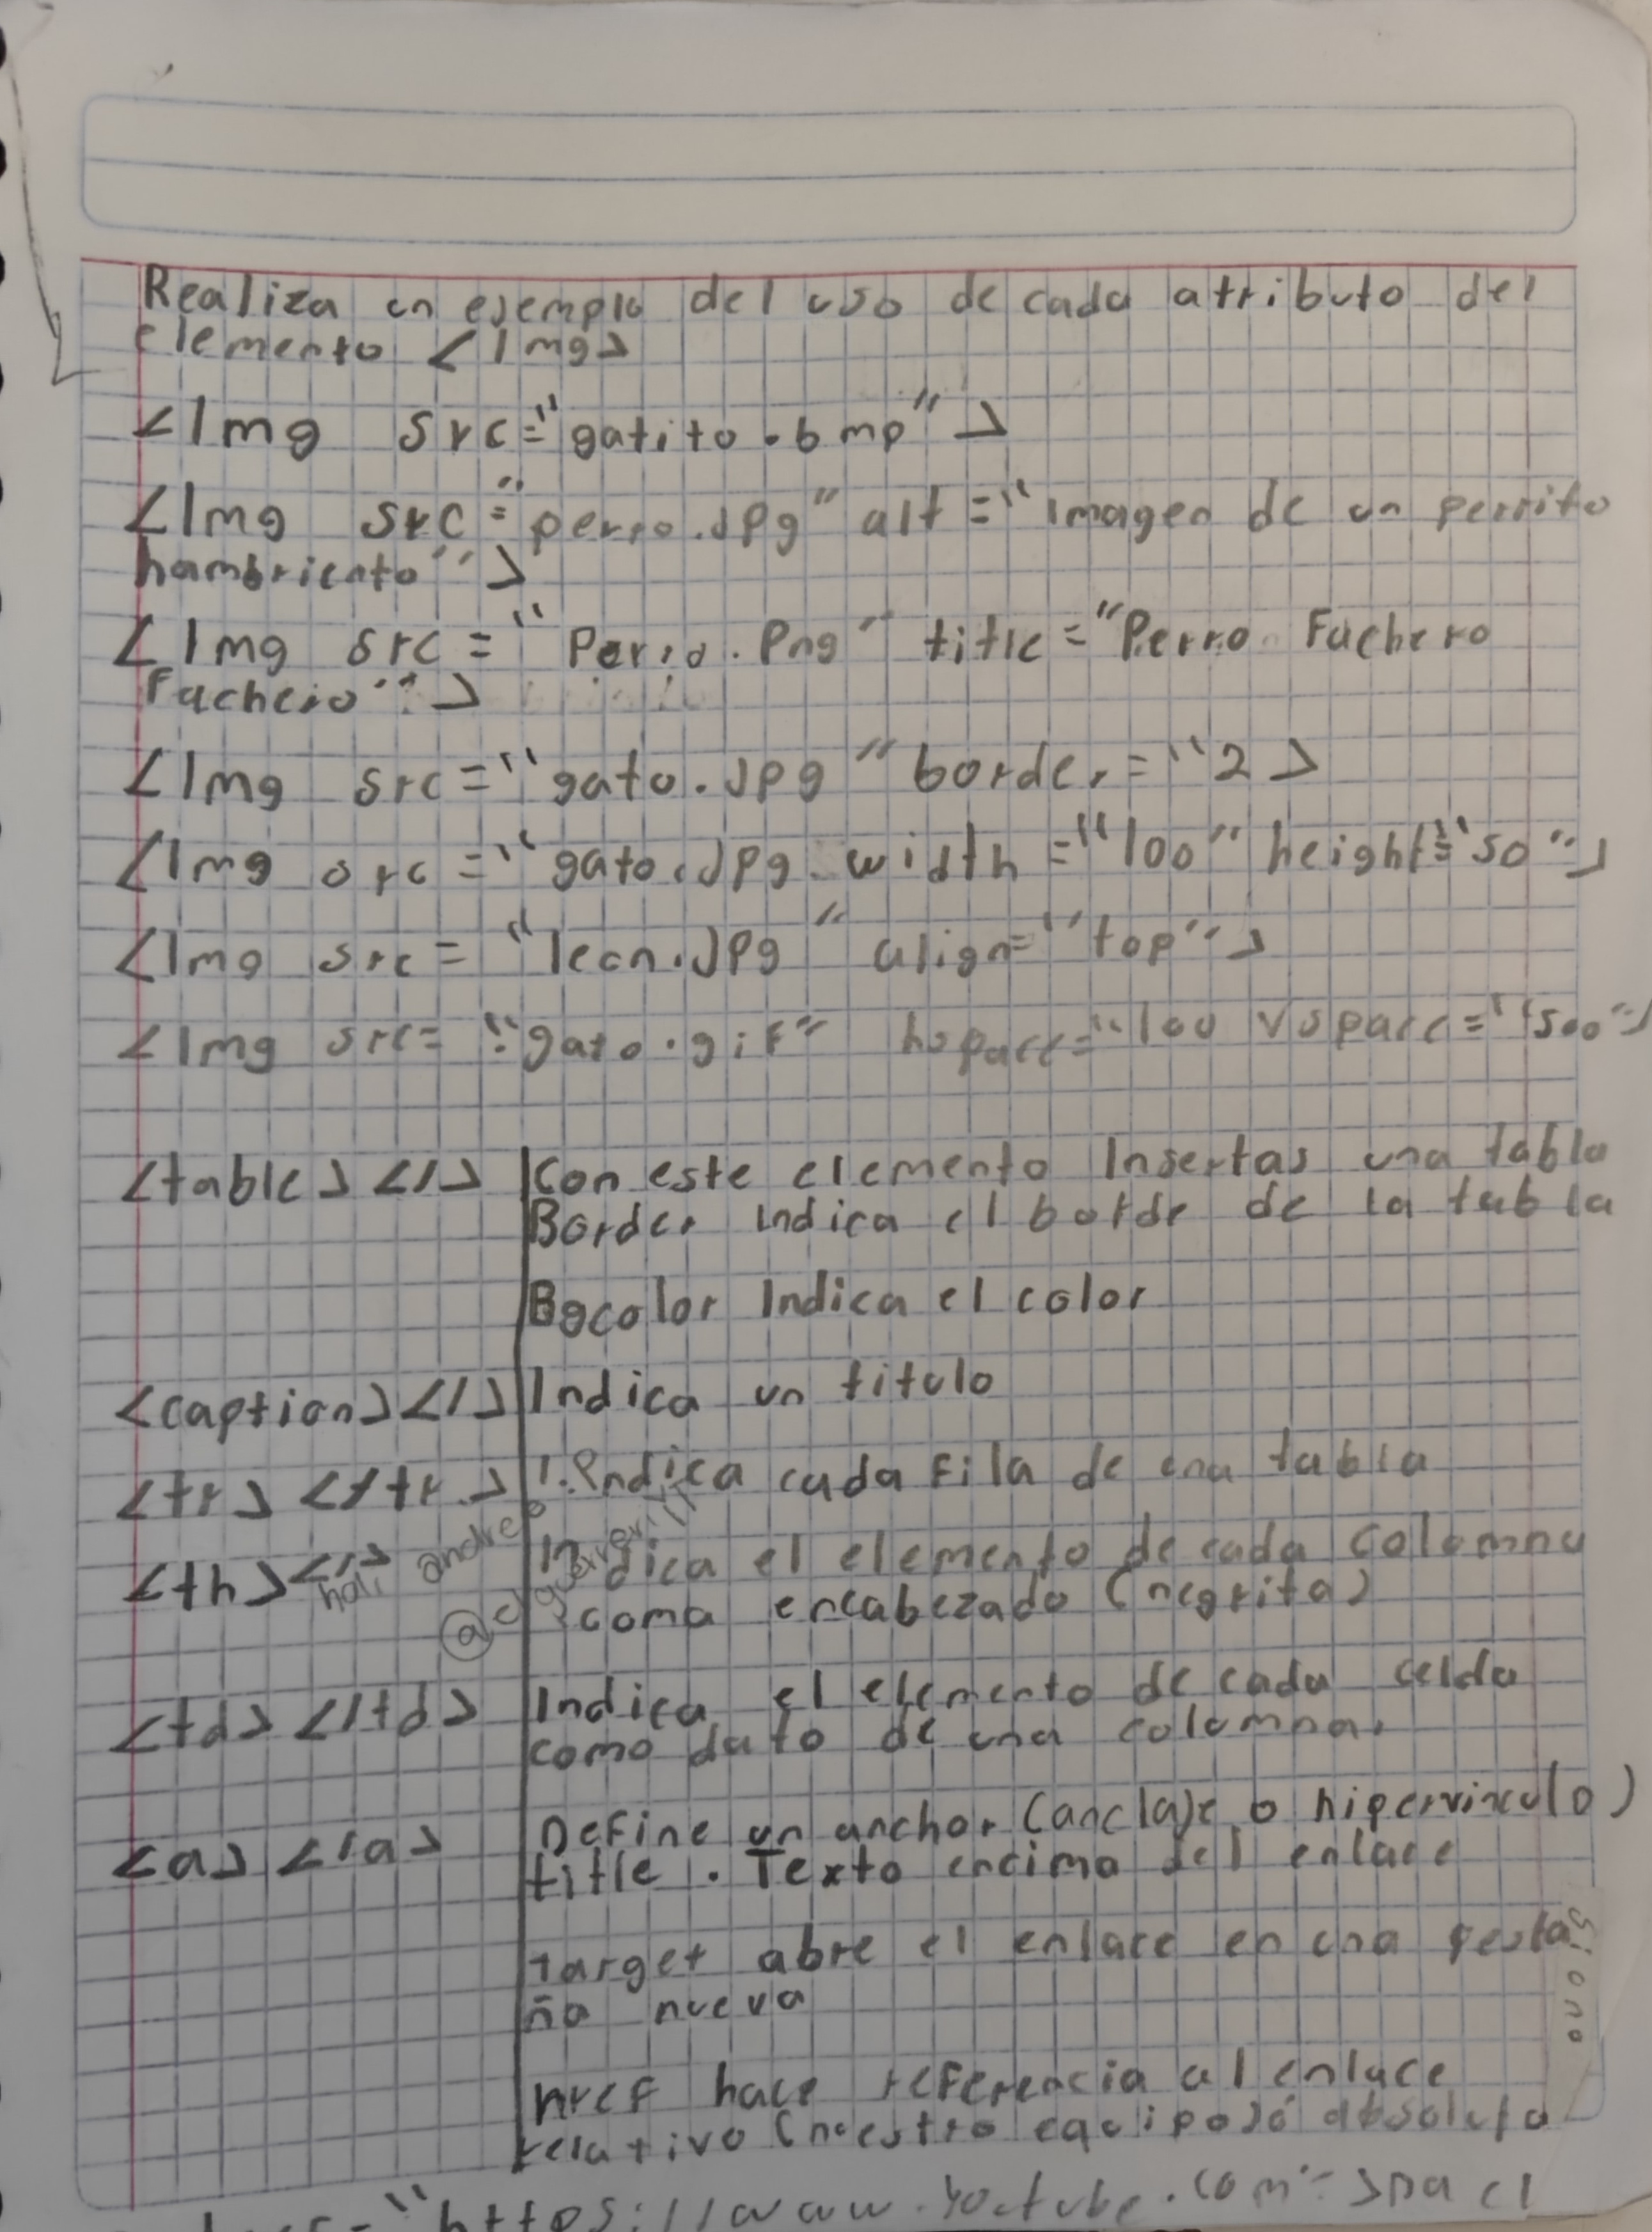 Realiza un ejemplo del uso de cada atributo del
elemento <Img>
<Img src="gatito.bmp">
<Img src="perro.Jpg" alt="Imagen de un perrito
hambriento">
<Img src="Perro.Png" title="Perro Fachero
Fachero">
<Img src="gato.Jpg" border="2>
<Img src="gato.Jpg width="100" height="50">
<Img src="leon.Jpg" align="top">
<Img src="gato.gif" hspace="100 Vspace="500">
<table> </> Con este elemento Insertas una tabla
Border Indica el borde de la tabla
Bgcolor Indica el color
<caption></> Indica un titulo
<tr> </tr> Indica cada Fila de una tabla
<th></> Indica el elemento de cada columna
como encabezado (negrita)
hali andre
@
<td> </td> Indica el elemento de cada celda
como dato de una columna.
<a> </a> Define un anchor (anclaje o hipervinculo)
title. Texto encima del enlace
target abre el enlace en una pesta
ña nueva
href hace referencia al enlace
relativo (nuestro equipo) ó absoluto
"https://www.Youtube.com">
Si ono